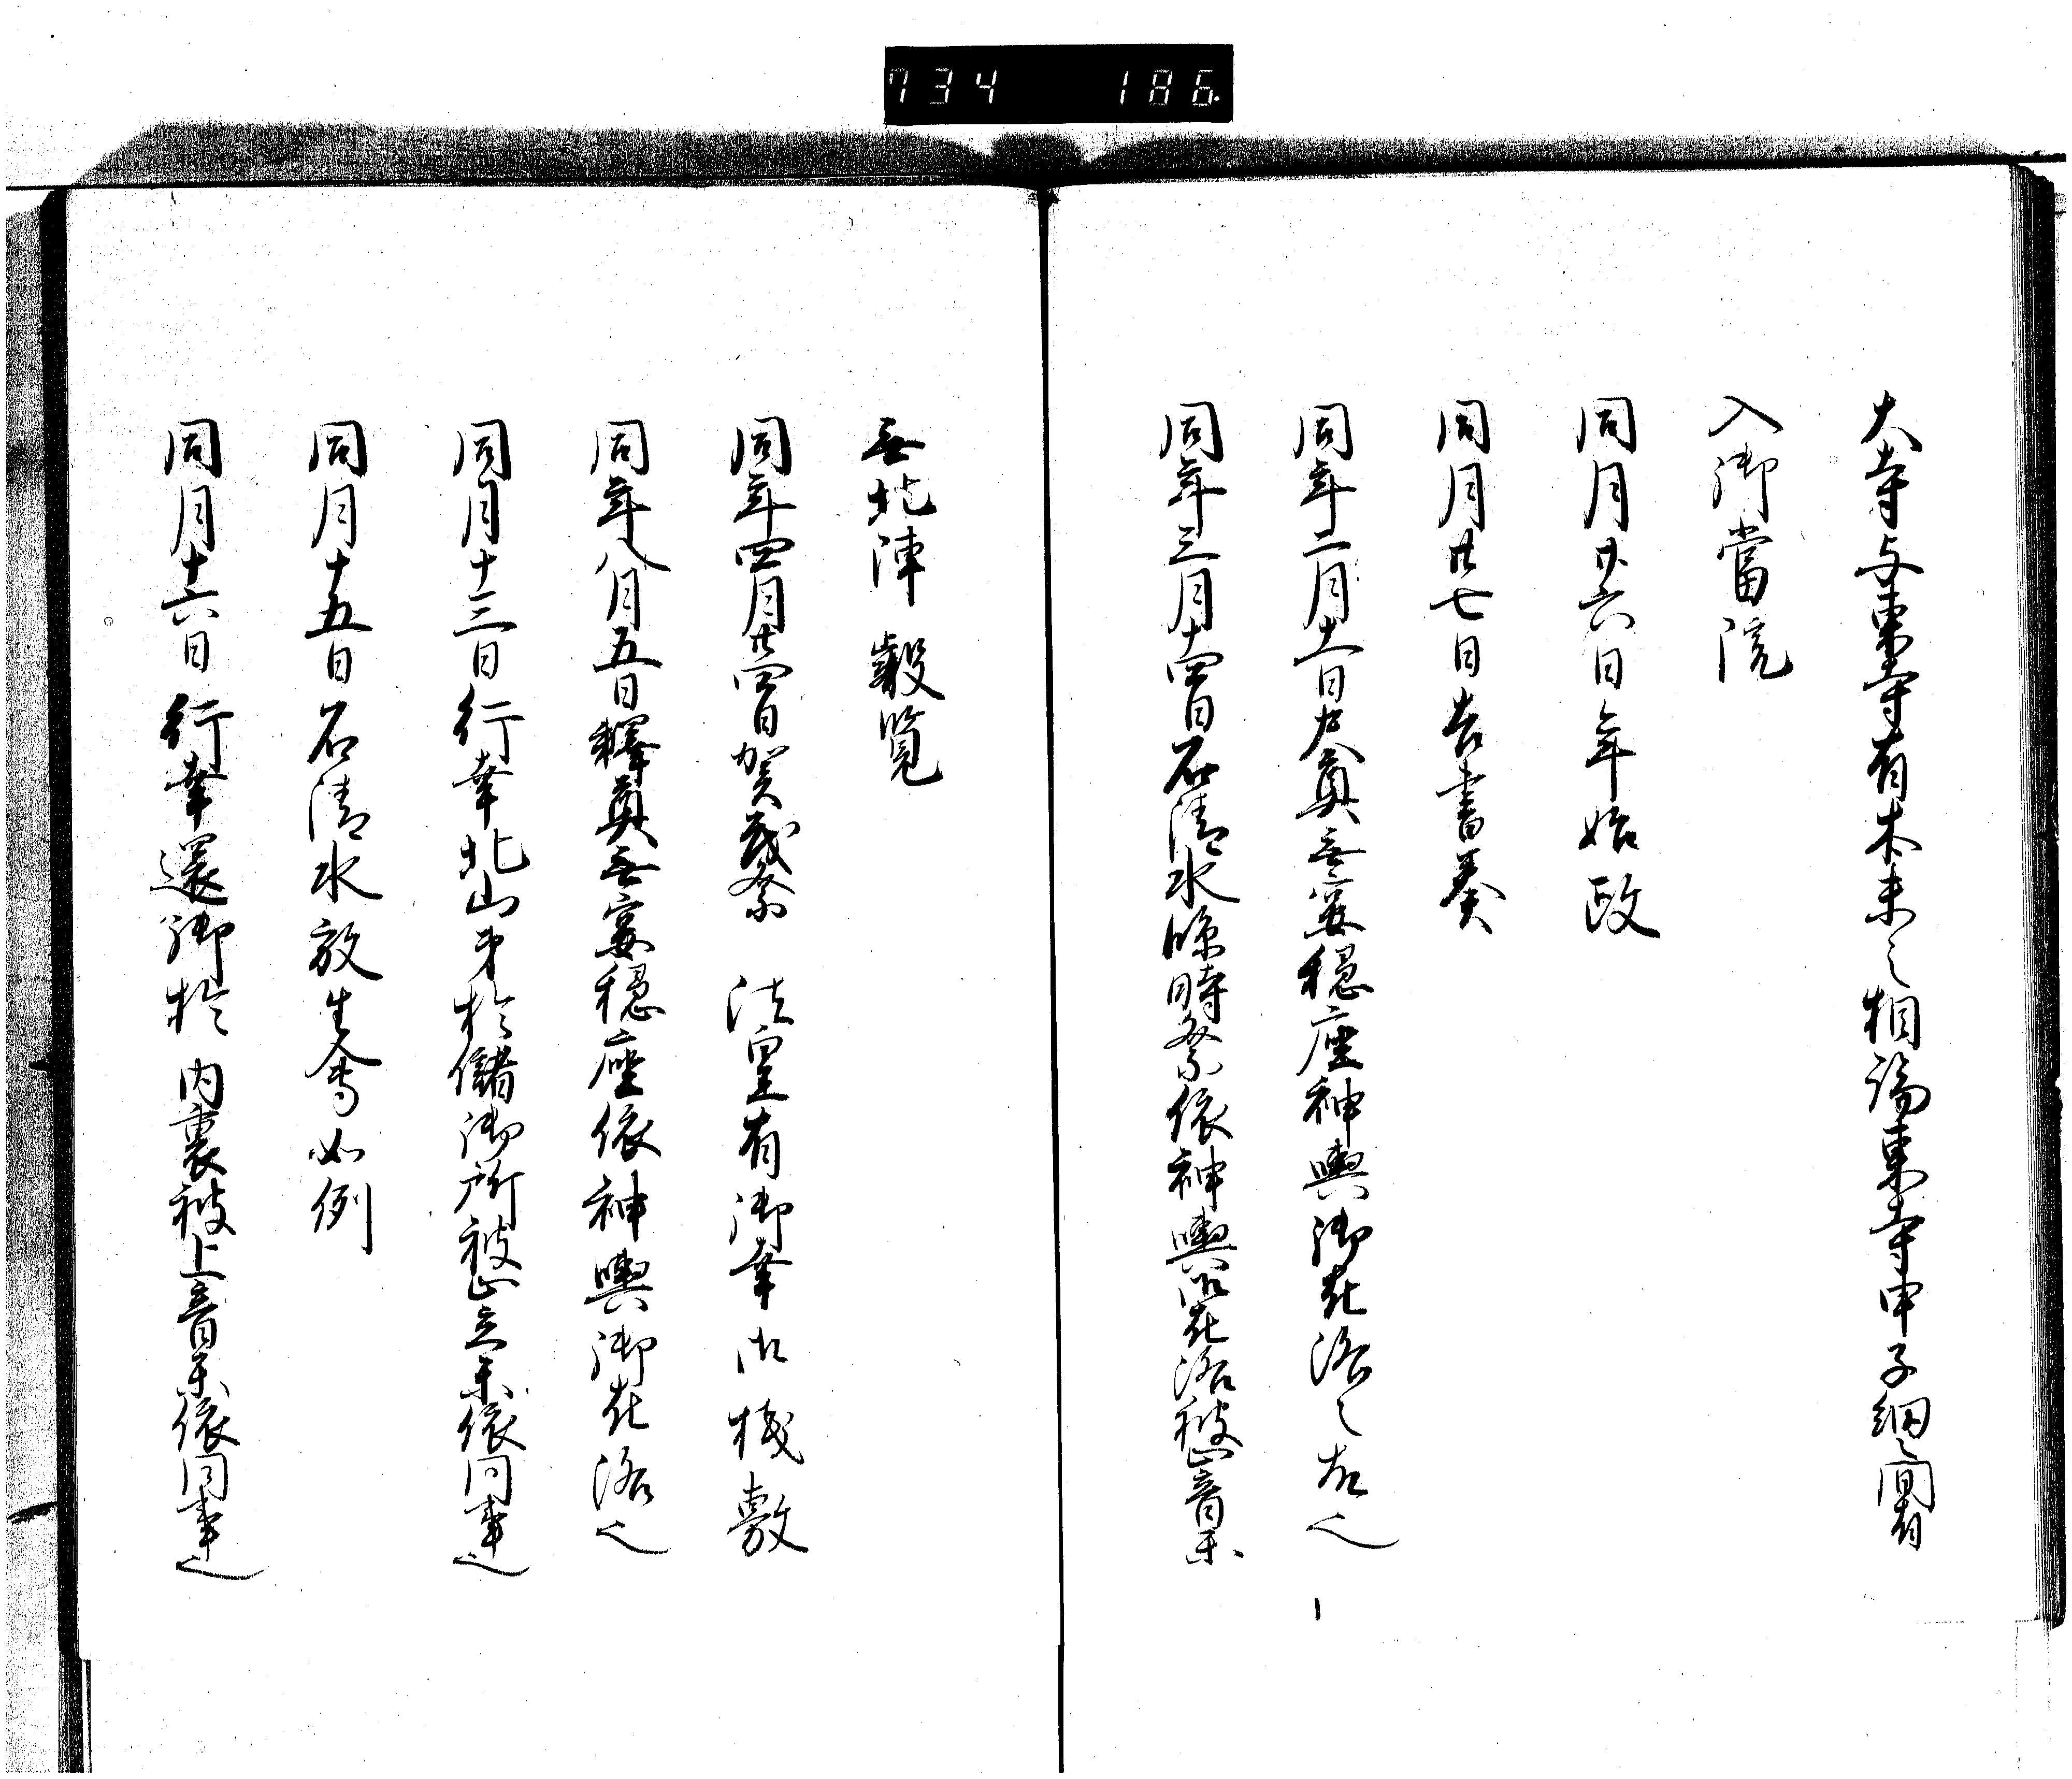 734 186
大寺与東寺有本末之相論東寺申子細之間有
入御當院
同月廿六日年始政
同月廿七日吉書奏
同年二月十一日尺奠無宴穏座神輿御在洛之故也
同年三月十四日石清水臨時祭依神輿御在洛被止音楽
無北陣叡覧
同年四月廿四日賀茂祭 法皇有御幸御桟敷
同年八月五日釋奠無宴穏座依神輿御在洛也
同月十三日行幸北山第於儲御所被止立楽依同事也
同月十五日石清水放生會如例
同月十六日行幸還御於 内裏被止音楽依同事也